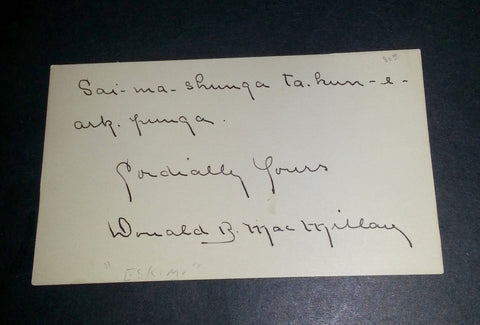 Sai-ma-shunga ta.kun-e-
ark.punga.
Cordially Yours
Donald B. MacMillan
"ESKIMO"